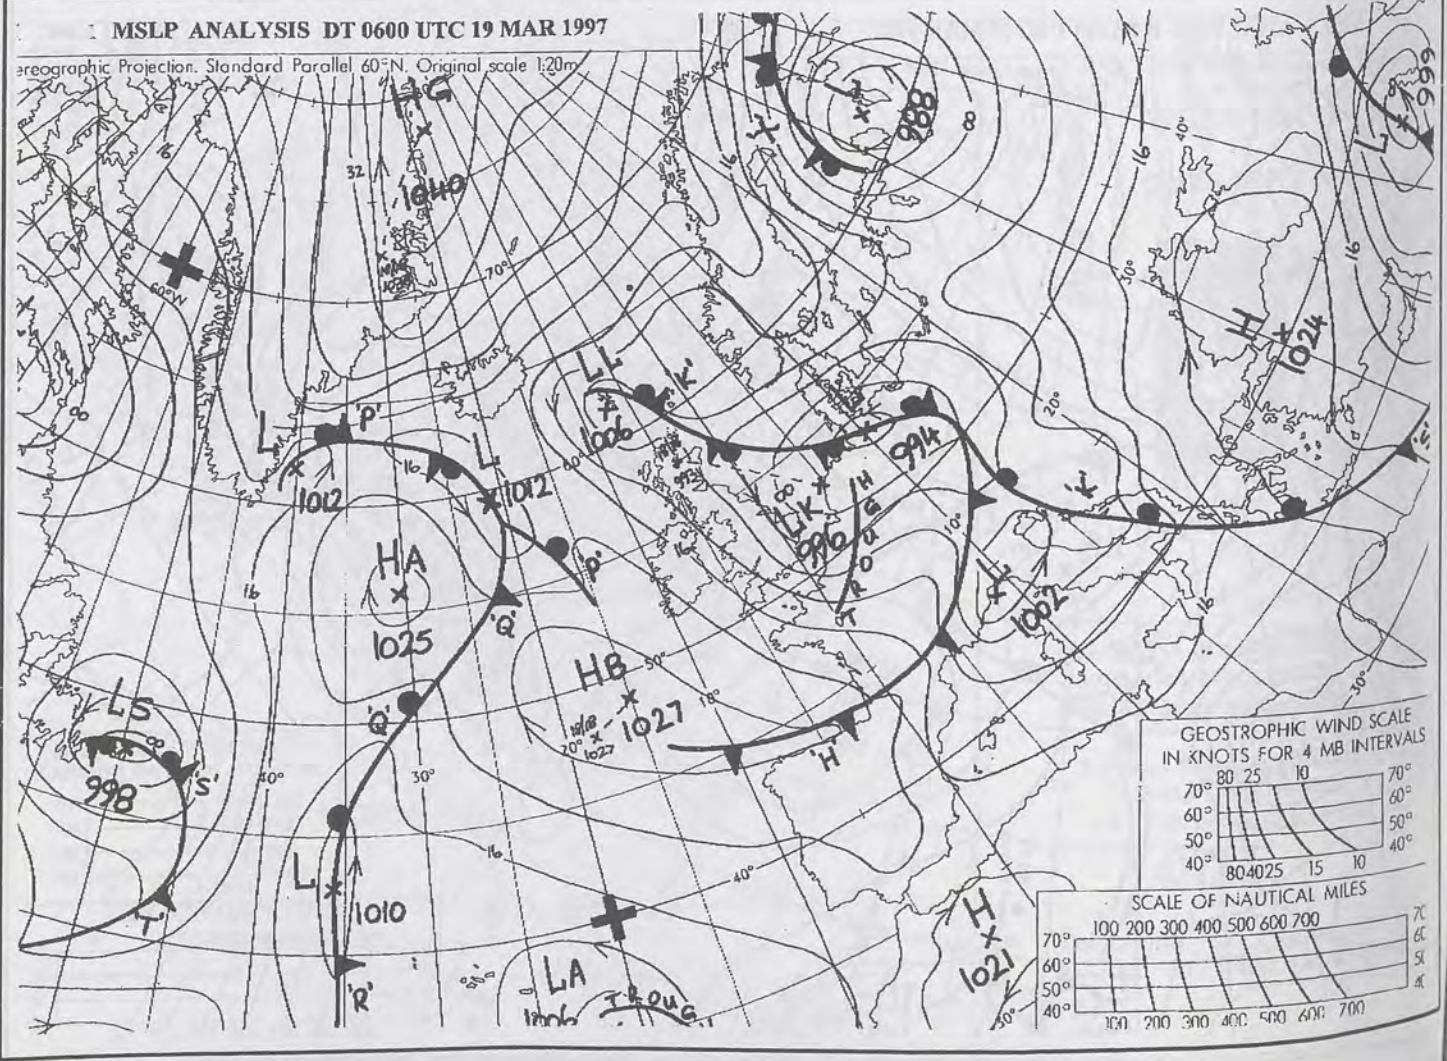 MSLP ANALYSIS DT 0600 UTC 19 MAR 1997
ereographic Projection. Standard Parallel 60°N. Original scale 1:20m
HG
1040
L
988
8
16
40°
L
996
16
32
16
60°W
70°
8
16
30°
16
H
1024
L
'P'
1012
16
L
1012
LL
1006
60°
'K'
994
20°
'K'
8
LK
996
TROUGH
10°
L
1002
16
16
HA
1025
'Q'
'P'
'Q'
HB
1027
1027
20°
50°
18°
'H'
30°
LS
8
998
'S'
40°
30°
'T'
L
1010
'R'
16
40°
LA
1006
TROUG
H
1021
30°
GEOSTROPHIC WIND SCALE
IN KNOTS FOR 4 MB INTERVALS
80 25 10
70° 70°
60° 60°
50° 50°
40° 40°
80 40 25 15 10
SCALE OF NAUTICAL MILES
100 200 300 400 500 600 700
70°
60°
50°
40°
100 200 300 400 500 600 700